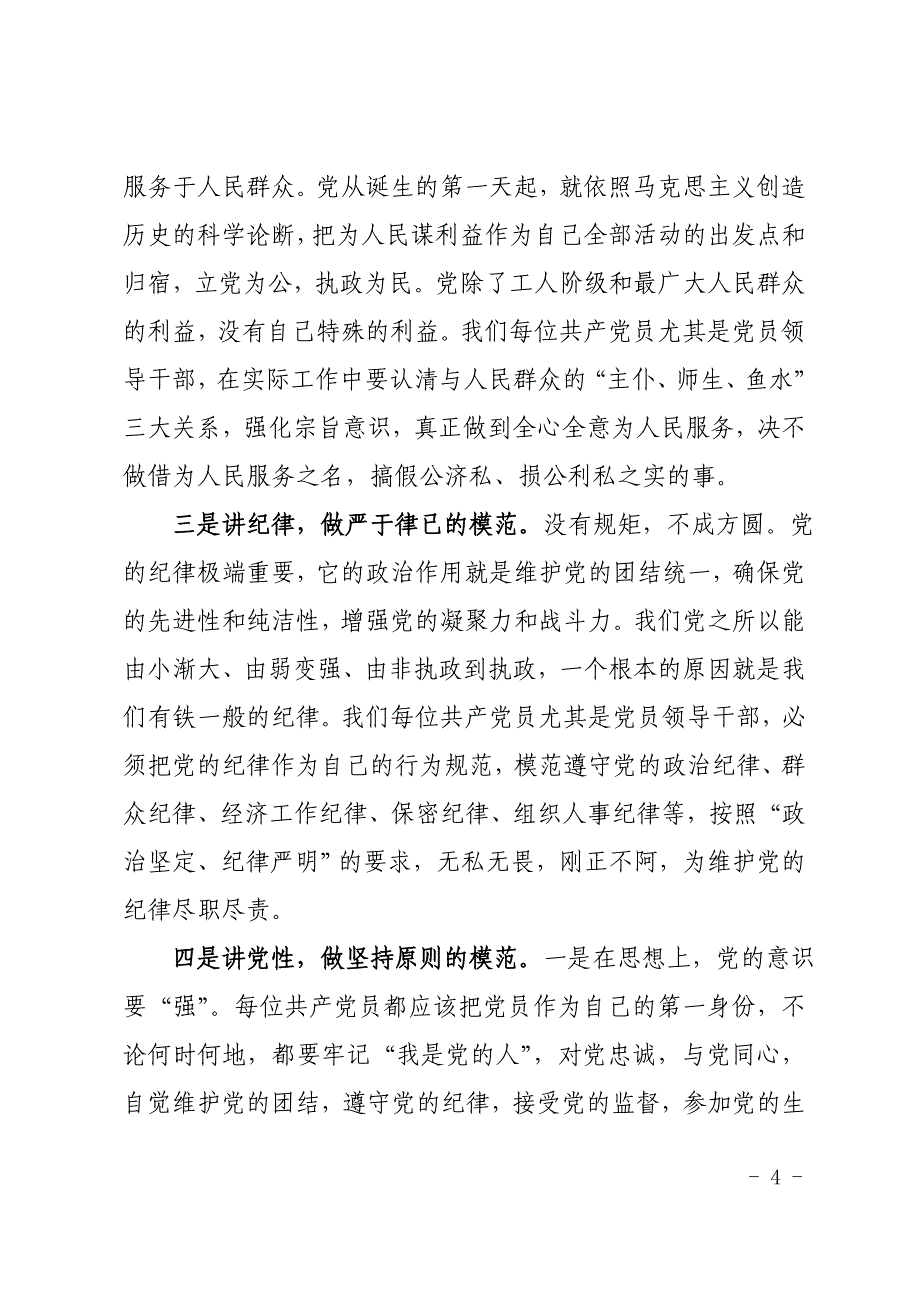 服务于人民群众。党从诞生的第一天起，就依照马克思主义创造
历史的科学论断，把为人民谋利益作为自己全部活动的出发点和
归宿，立党为公，执政为民。党除了工人阶级和最广大人民群众
的利益，没有自己特殊的利益。我们每位共产党员尤其是党员领
导干部，在实际工作中要认清与人民群众的“主仆、师生、鱼水”
三大关系，强化宗旨意识，真正做到全心全意为人民服务，决不
做借为人民服务之名，搞假公济私、损公利私之实的事。
三是讲纪律，做严于律已的模范。没有规矩，不成方圆。党
的纪律极端重要，它的政治作用就是维护党的团结统一，确保党
的先进性和纯洁性，增强党的凝聚力和战斗力。我们党之所以能
由小渐大、由弱变强、由非执政到执政，一个根本的原因就是我
们有铁一般的纪律。我们每位共产党员尤其是党员领导干部，必
须把党的纪律作为自己的行为规范，模范遵守党的政治纪律、群
众纪律、经济工作纪律、保密纪律、组织人事纪律等，按照“政
治坚定、纪律严明”的要求，无私无畏，刚正不阿，为维护党的
纪律尽职尽责。
四是讲党性，做坚持原则的模范。一是在思想上，党的意识
要“强”。每位共产党员都应该把党员作为自己的第一身份，不
论何时何地，都要牢记“我是党的人”，对党忠诚，与党同心，
自觉维护党的团结，遵守党的纪律，接受党的监督，参加党的生
- 4 -